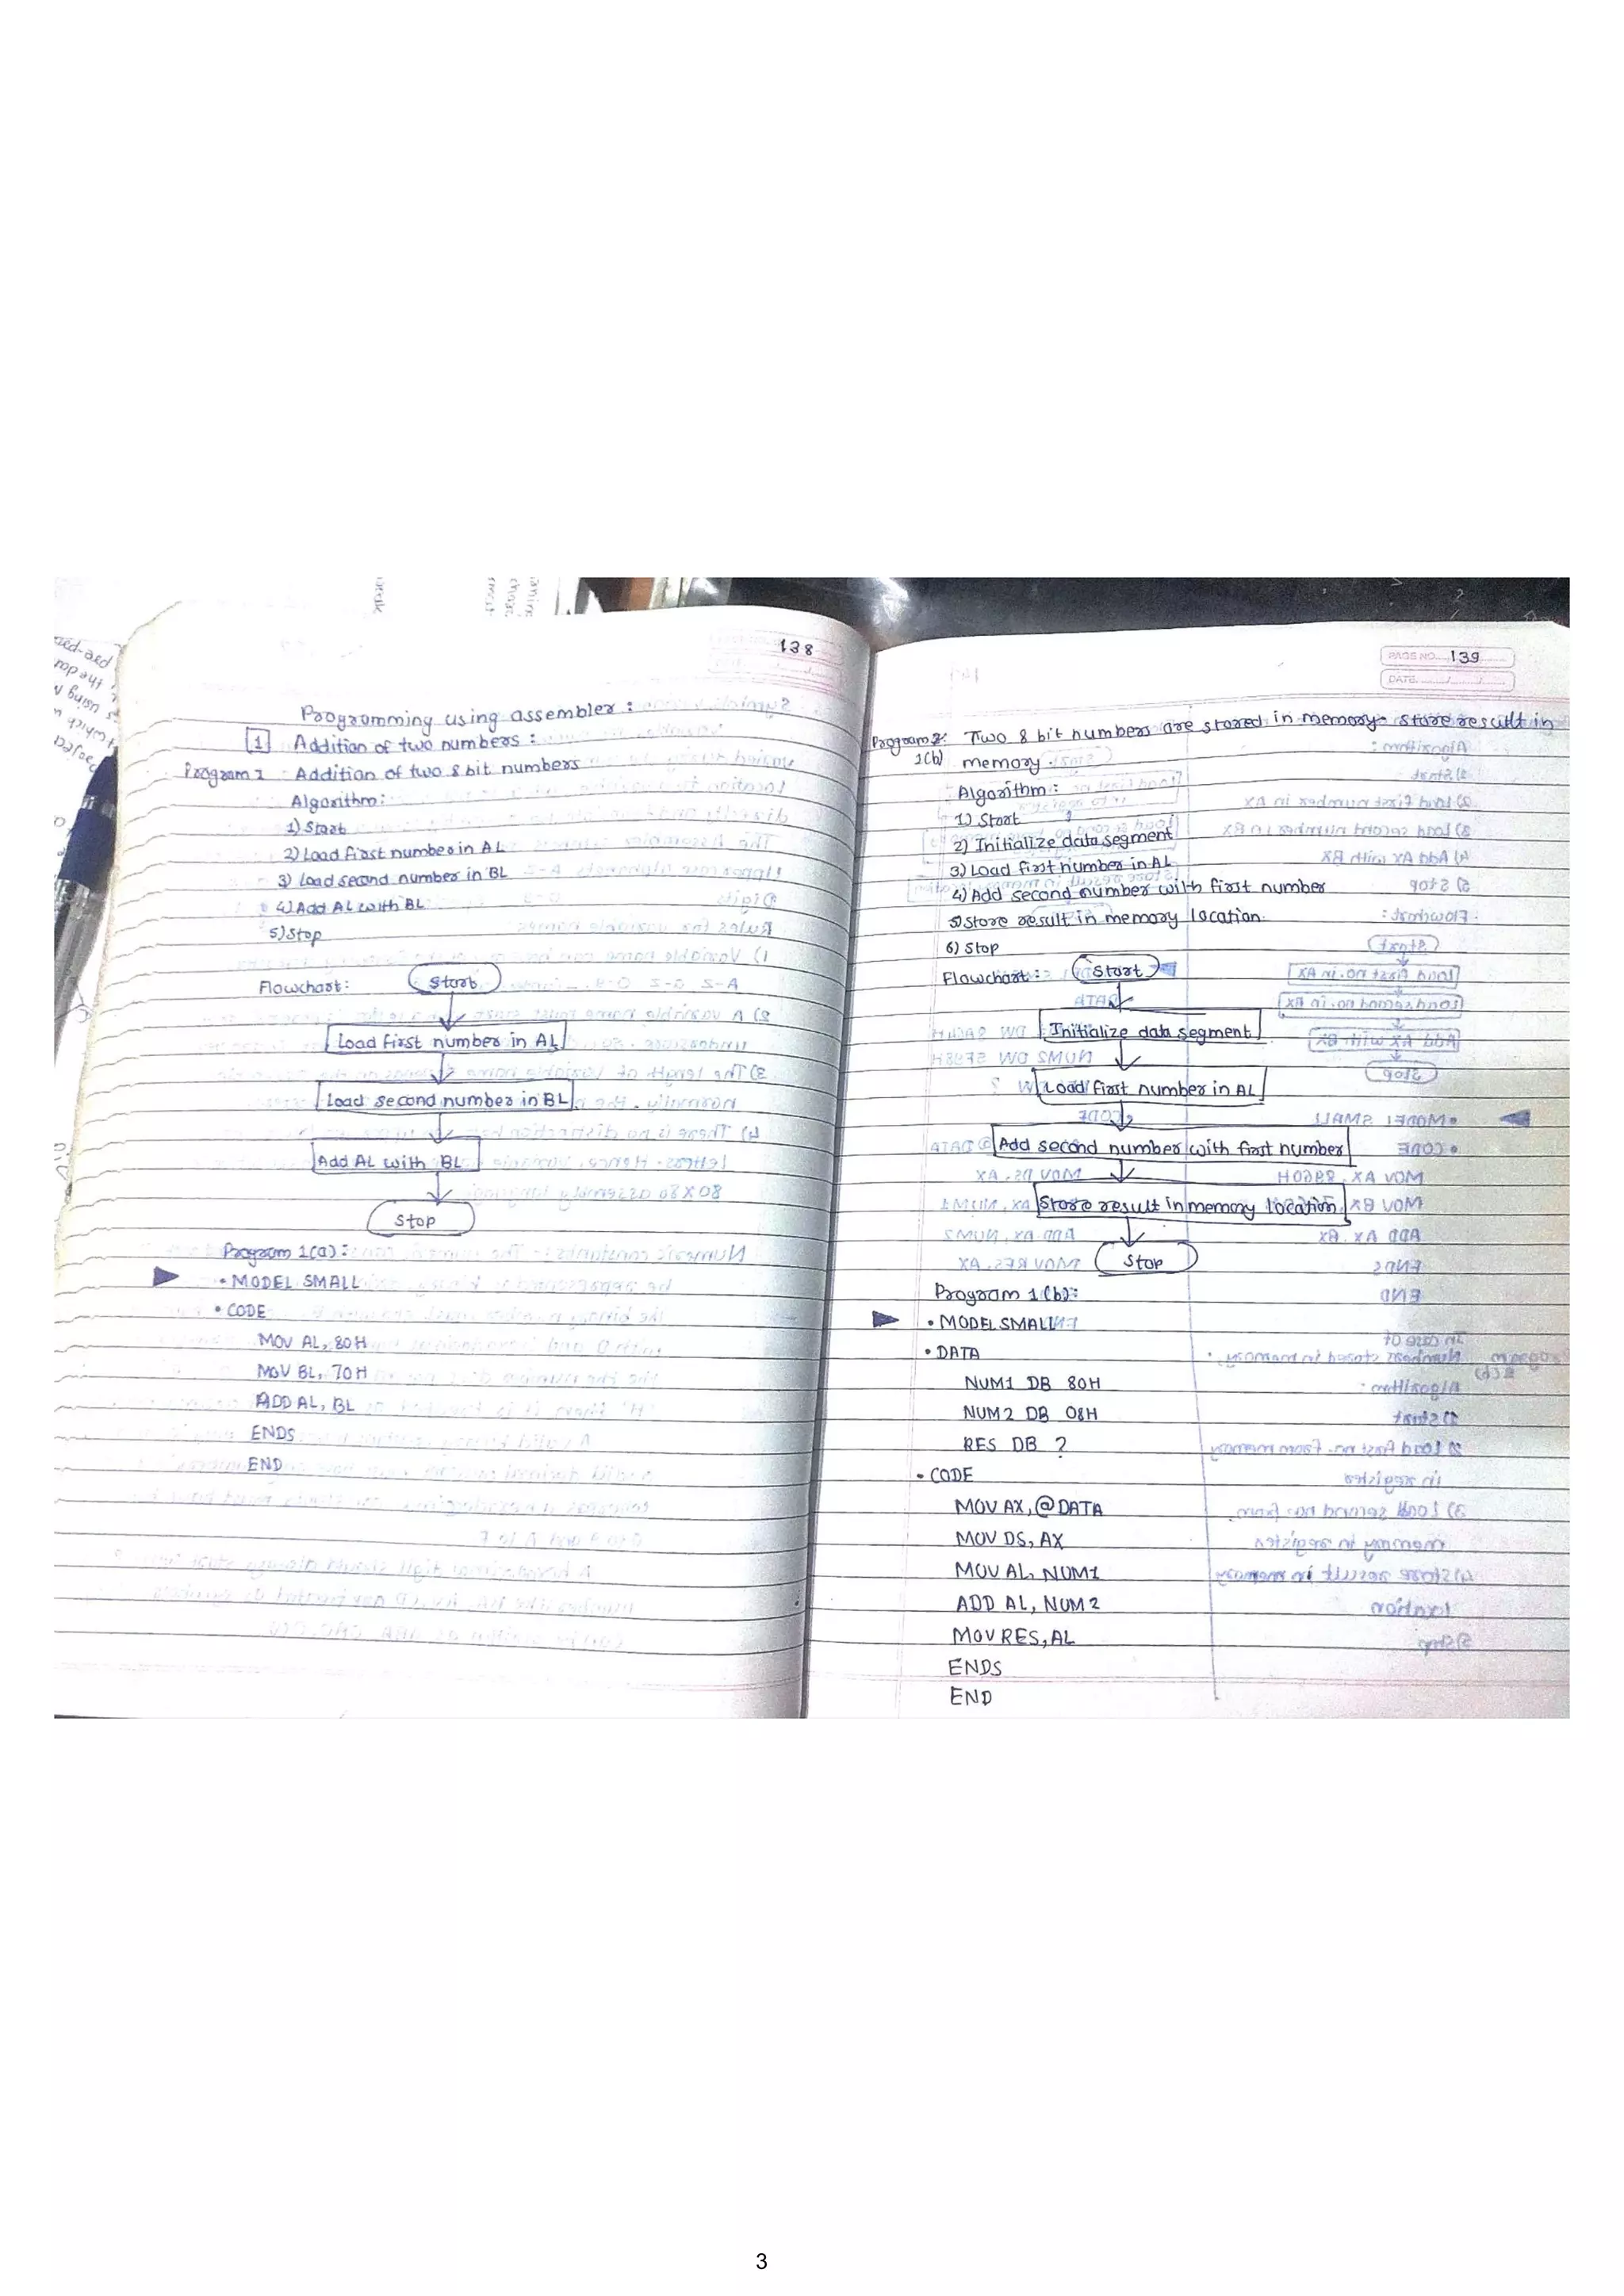 138
Programming using assembler :
1 Addition of two numbers :
Program 1 Addition of two 8 bit numbers
Algorithm:
1) Start
2) Load first number in AL
3) Load second number in BL
4) Add AL with BL
5) Stop
Flowchart: Start
Load first number in AL
Load second number in BL
Add AL with BL
Stop
Program 1(a) :
• MODEL SMALL
• CODE
MOV AL, 80H
MOV BL, 70H
ADD AL, BL
ENDS
END
PAGE NO. 139
DATE
Program 2: Two 8 bit numbers are stored in memory store result in
1(b) memory.
Algorithm :
1) Start
2) Initialize data segment
3) Load first number in AL
4) Add second number with first number
5) Store result in memory location.
6) Stop
Flowchart : Start
Initialize data segment
Load first number in AL
Add second number with first number
Store result in memory location
Stop
Program 1(b):
• MODEL SMALL
• DATA
NUM1 DB 80H
NUM2 DB 08H
RES DB ?
• CODE
MOV AX, @DATA
MOV DS, AX
MOV AL, NUM1
ADD AL, NUM2
MOV RES, AL
ENDS
END
3